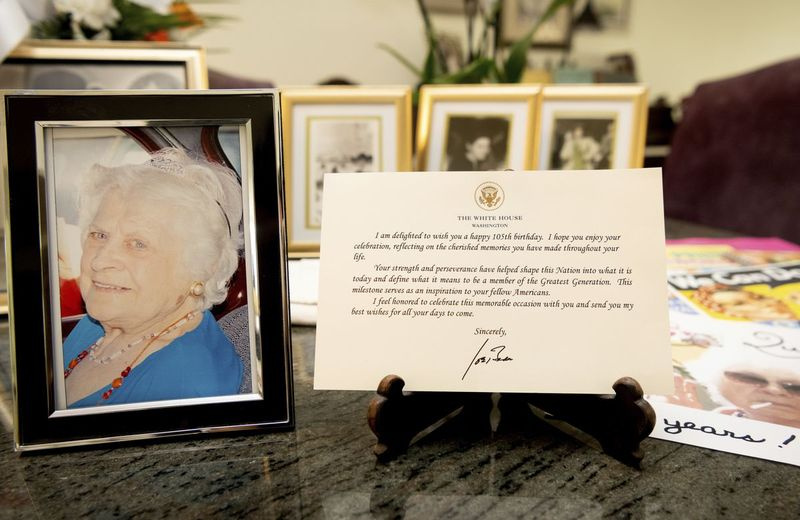 THE WHITE HOUSE
WASHINGTON
I am delighted to wish you a happy 105th birthday. I hope you enjoy your
celebration, reflecting on the cherished memories you have made throughout your
life.
Your strength and perseverance have helped shape this Nation into what it is
today and define what it means to be a member of the Greatest Generation. This
milestone serves as an inspiration to your fellow Americans.
I feel honored to celebrate this memorable occasion with you and send you my
best wishes for all your days to come.
Sincerely,
We Can Do
years !